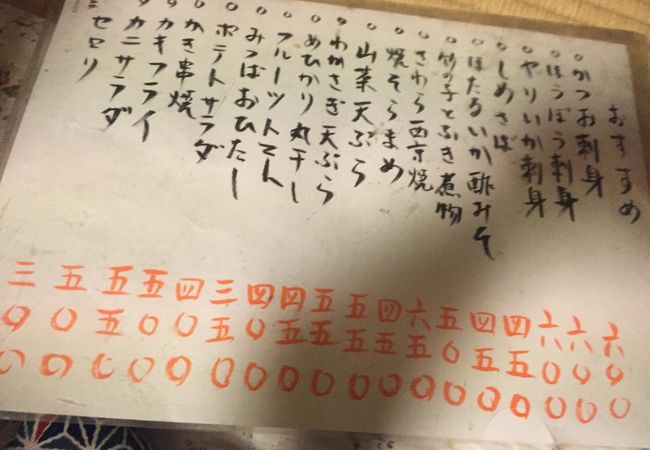 おすすめ
。かつお刺身 六〇〇
。ほうぼう刺身 六〇〇
。やりいか刺身 六〇〇
。しめさば 四五〇
。ほたるいか酢みそ 四五〇
。竹の子とふき煮物 五〇〇
。さわら西京焼 六五〇
。焼そらまめ 四五〇
。山菜天ぷら 五五〇
。わかさぎ天ぷら 五五〇
。めひかり丸干し 四五〇
。フルーツトマト 四〇〇
。みつばおひたし 三五〇
。ポテトサラダ 四〇〇
。かき串焼 五〇〇
。カキフライ 五五〇
。カニサラダ 五〇〇
セロリ 三〇〇